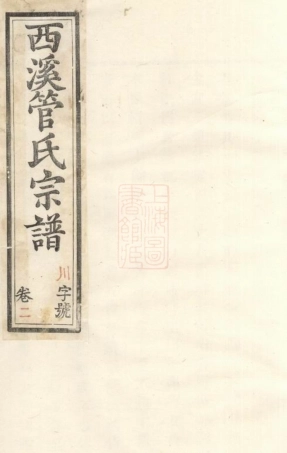 西溪管氏宗譜
川字號
卷二
上海圖
書館藏